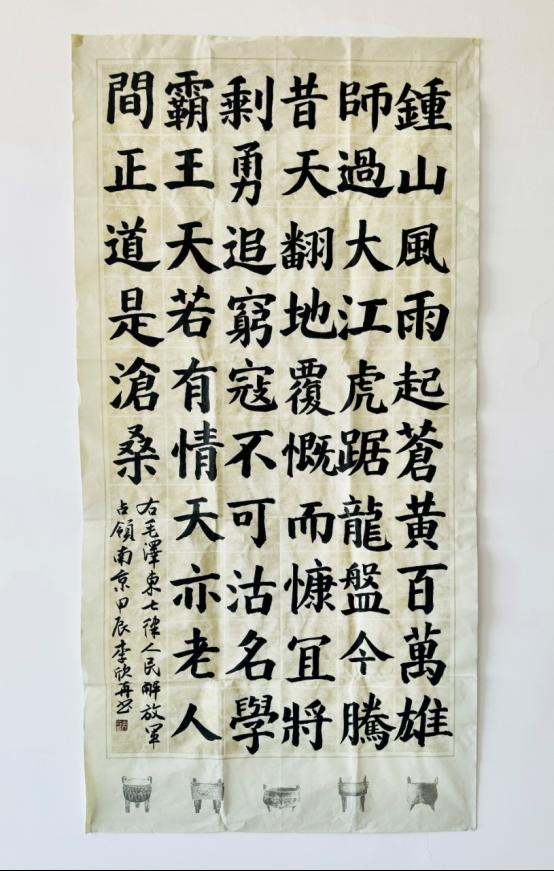 鍾山風雨起蒼黃百萬雄
師過大江虎踞龍盤今騰
昔天翻地覆慨而慷宜將
剩勇追窮寇不可沽名學
霸王天若有情天亦老人
間正道是滄桑
右毛澤東七律人民解放軍
占領南京甲辰李欣再书